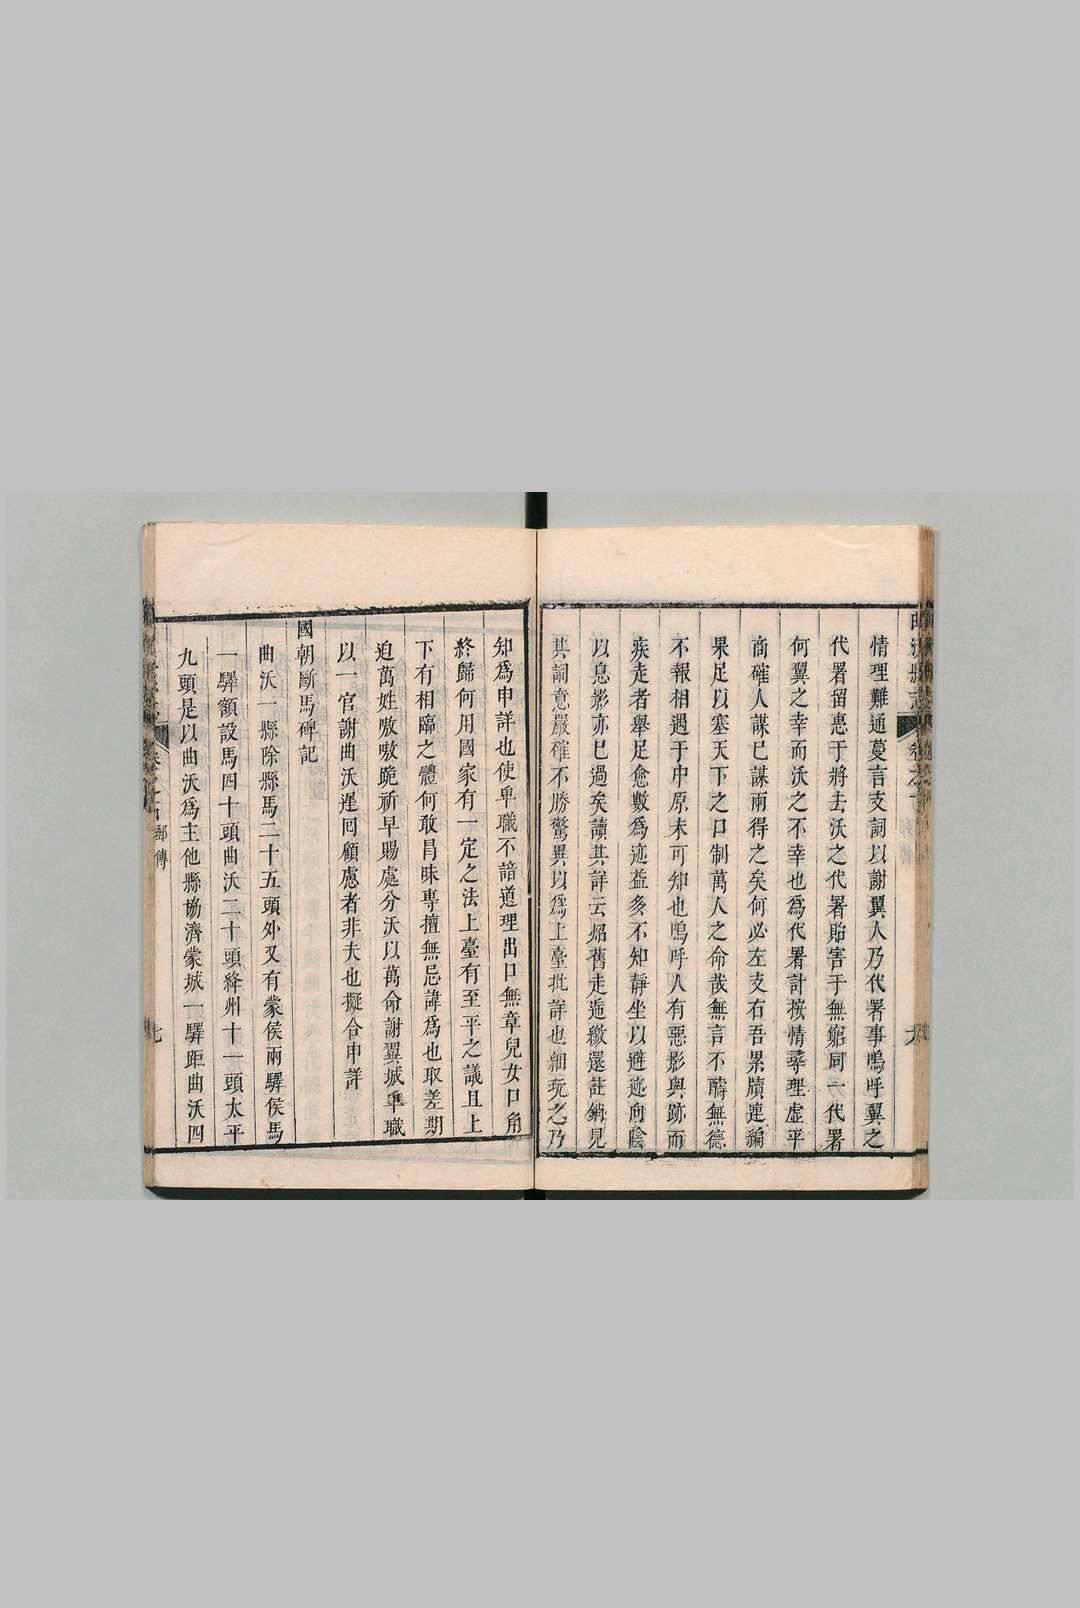 情理難通蔓言支詞以謝翼人乃代署事嗚呼翼之
代署留惠于將去沃之代署貽害于無窮同一代署
何翼之幸而沃之不幸也為代署計按情尋理虛平
商確人謀已謀兩得之矣何必左支右吾累牘連編
果足以塞天下之口制萬人之命哉無言不讎無德
不報相遇于中原未可知也嗚呼人有惡影與跡而
疾走者舉足愈數為迹益多不知靜坐以避迹向陰
以息影亦已過矣讀其詳云炤舊走遞繳還註銷見
其詞意嚴確不勝驚異以為上臺批詳也細玩之乃
知為申詳也使卑職不諳道理出口無章兒女口角
終歸何用國家有一定之法上臺有至平之議且上
下有相臨之體何敢昌昧專擅無忌諱為也取差期
迫萬姓嗷嗷跪祈早賜處分沃以萬命謝翼城卑職
以一官謝曲沃遲回顧慮者非夫也擬合申詳
國朝斷馬碑記
曲沃一縣除縣馬二十五頭外又有蒙侯兩驛侯馬
一驛額設馬四十頭曲沃二十頭絳州十一頭太平
九頭是以曲沃為主他縣協濟蒙城一驛距曲沃四
郵傳
七